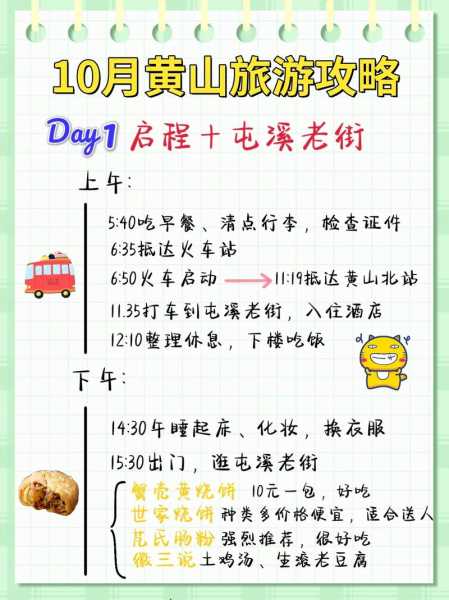 10月黄山旅游攻略
Day1 启程+屯溪老街
上午:
5:40吃早餐、清点行李,检查证件
6:35抵达火车站
6:50火车启动 → 11:19抵达黄山北站
11.35打车到屯溪老街,入住酒店
12:10整理休息,下楼吃饭
下午:
14:30午睡起床、化妆,换衣服
15:30出门,逛屯溪老街
蟹壳黄烧饼 10元一包,好吃
世家烧饼 种类多价格便宜,适合送人
尾氏肠粉 强烈推荐,很好吃
徽三说 土鸡汤、生滚老豆腐